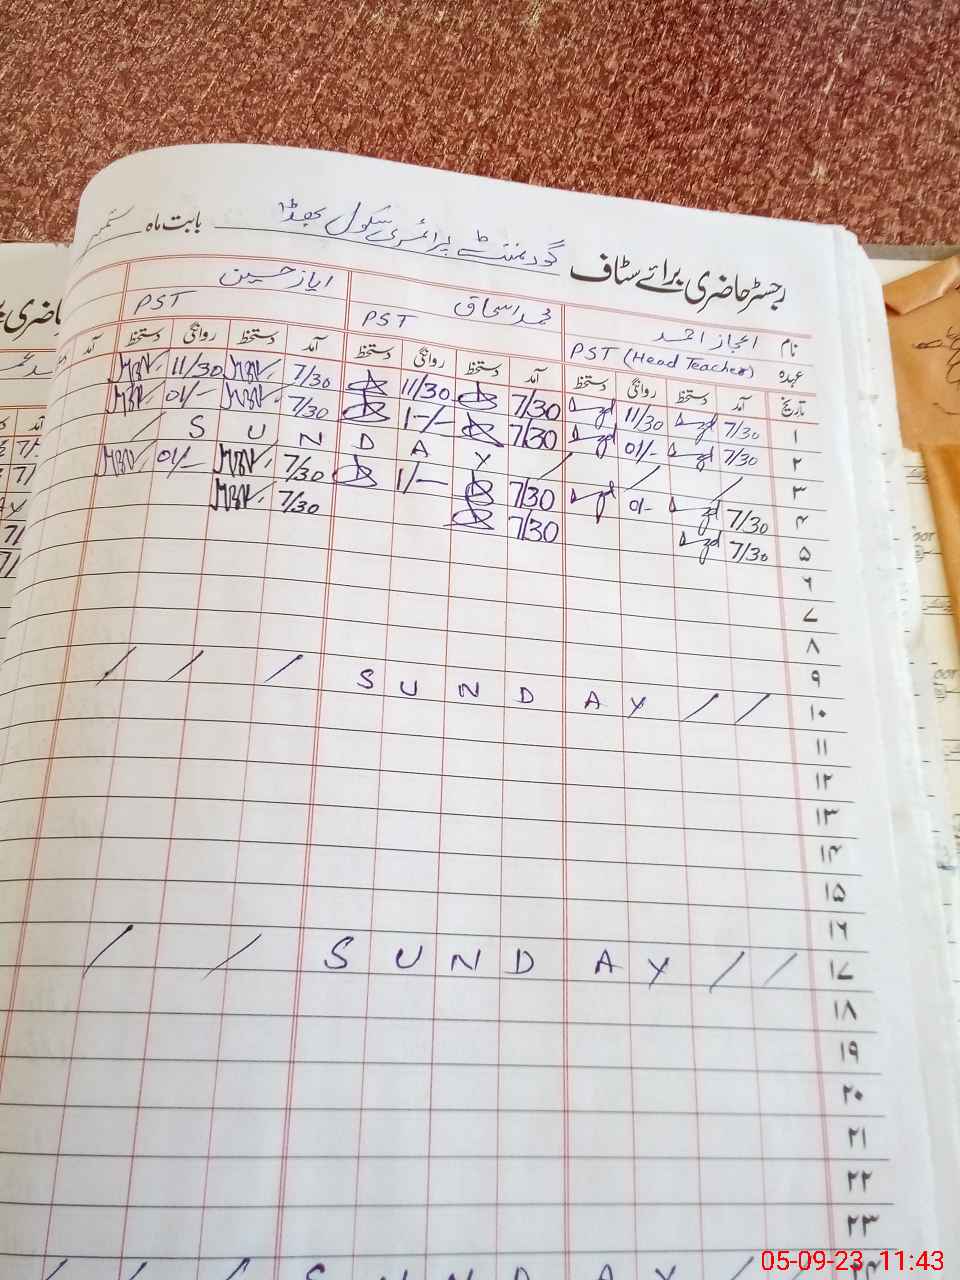 رجسٹر حاضری برائے سٹاف گورنمنٹ پرائمری سکول بابت ماہ ستمبر
نام اعجاز احمد محمد اسحاق ایاز حسین
عہدہ PST (Head Teacher) PST PST
تاریخ آمد دستخط روانگی دستخط آمد دستخط روانگی دستخط آمد دستخط روانگی دستخط آمد
۱ 7/30 11/30 7/30 11/30 7/30 11/30
۲ 7/30 01/- 7/30 1-/- 7/30 01/-
۳ / / / S U N D A Y /
۴ 7/30 0/- 7/30 1/- 7/30 01/-
۵ 7/30 7/30 7/30
۶
۷
۸
۹
۱۰ / / / S U N D A Y / /
۱۱
۱۲
۱۳
۱۴
۱۵
۱۶
۱۷ / / S U N D A Y / /
۱۸
۱۹
۲۰
۲۱
۲۲
۲۳
۲۴ / / / S U N D A Y /
05-09-23 11:43